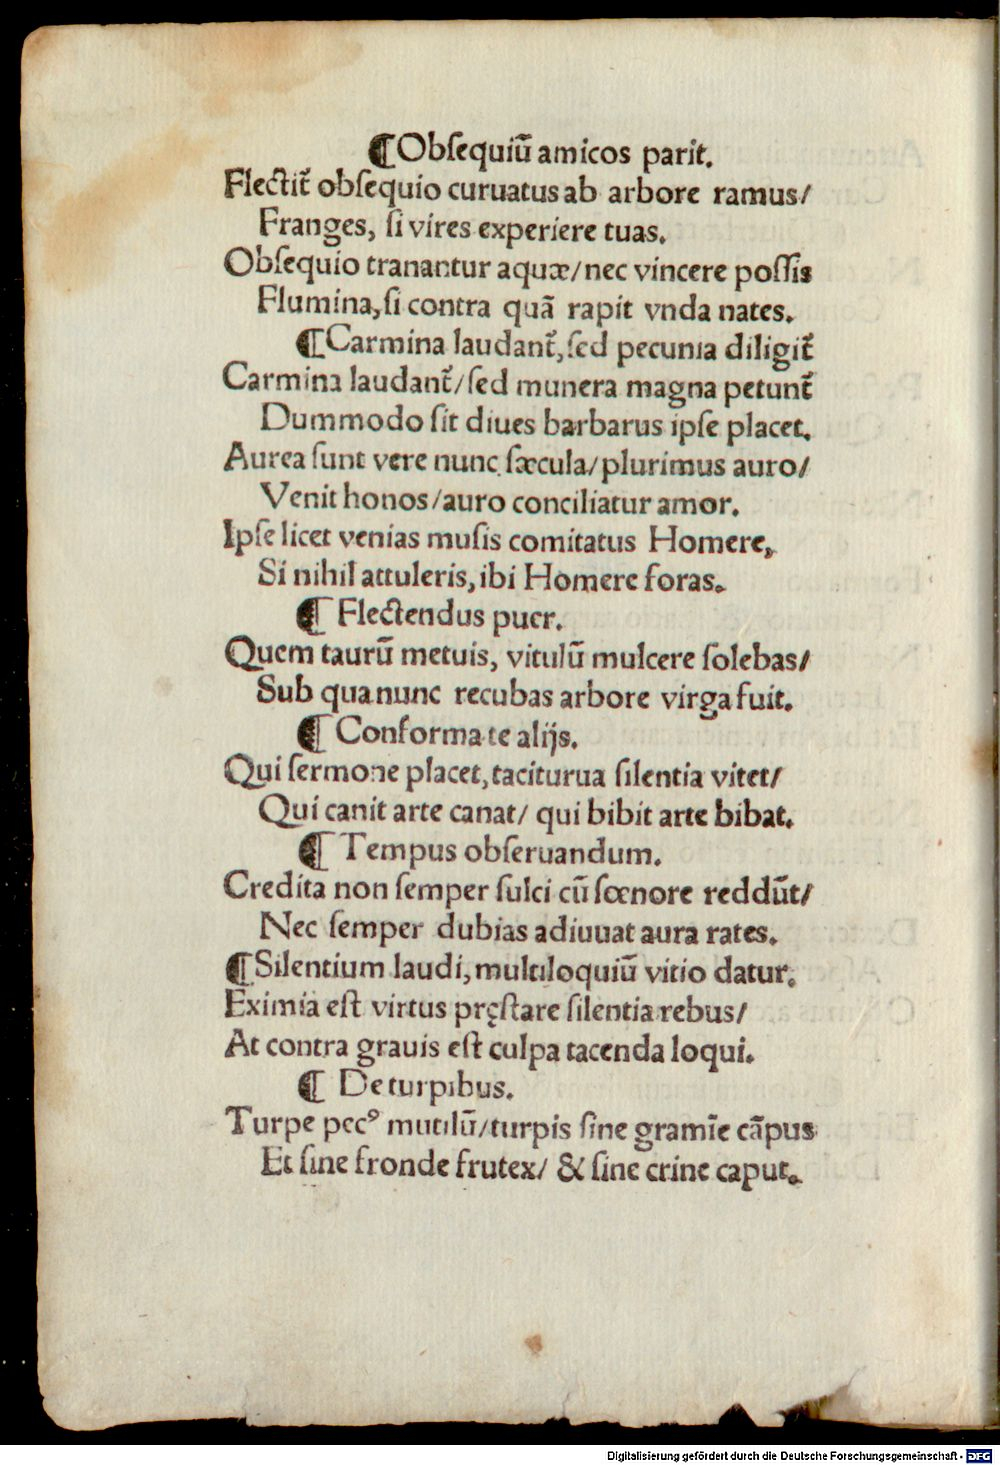 ¶Obſequiū amicos parit.
Flectit᷑ obſequio curuatus ab arbore ramus/
Franges, ſi vires experiere tuas.
Obſequio tranantur aquæ/nec vincere poſſis
Flumina,ſi contra quā rapit vnda nates.
¶Carmina laudant᷑,ſed pecunia diligit᷑
Carmina laudant᷑/ſed munera magna petunt᷑
Dummodo ſit diues barbarus ipſe placet.
Aurea ſunt vere nunc ſæcula/plurimus auro/
Venit honos/auro conciliatur amor.
Ipſe licet venias muſis comitatus Homere,
Si nihil attuleris,ibi Homere foras.
¶ Flectendus puer.
Quem taurū metuis, vitulū mulcere ſolebas/
Sub qua nunc recubas arbore virga fuit.
¶ Conforma te alijs.
Qui ſermone placet,taciturua ſilentia vitet/
Qui canit arte canat/ qui bibit arte bibat.
¶ Tempus obſeruandum.
Credita non ſemper ſulci cū fœnore reddūt/
Nec ſemper dubias adiuuat aura rates.
¶Silentium laudi,multiloquiū vitio datur.
Eximia eſt virtus pręſtare ſilentia rebus/
At contra grauis eſt culpa tacenda loqui.
¶ De turpibus.
Turpe pecꝰ mutilū/turpis ſine gramīe cāpus
Et ſine fronde frutex/ & ſine crine caput.
Digitalisierung gefördert durch die Deutsche Forschungsgemeinschaft - DFG